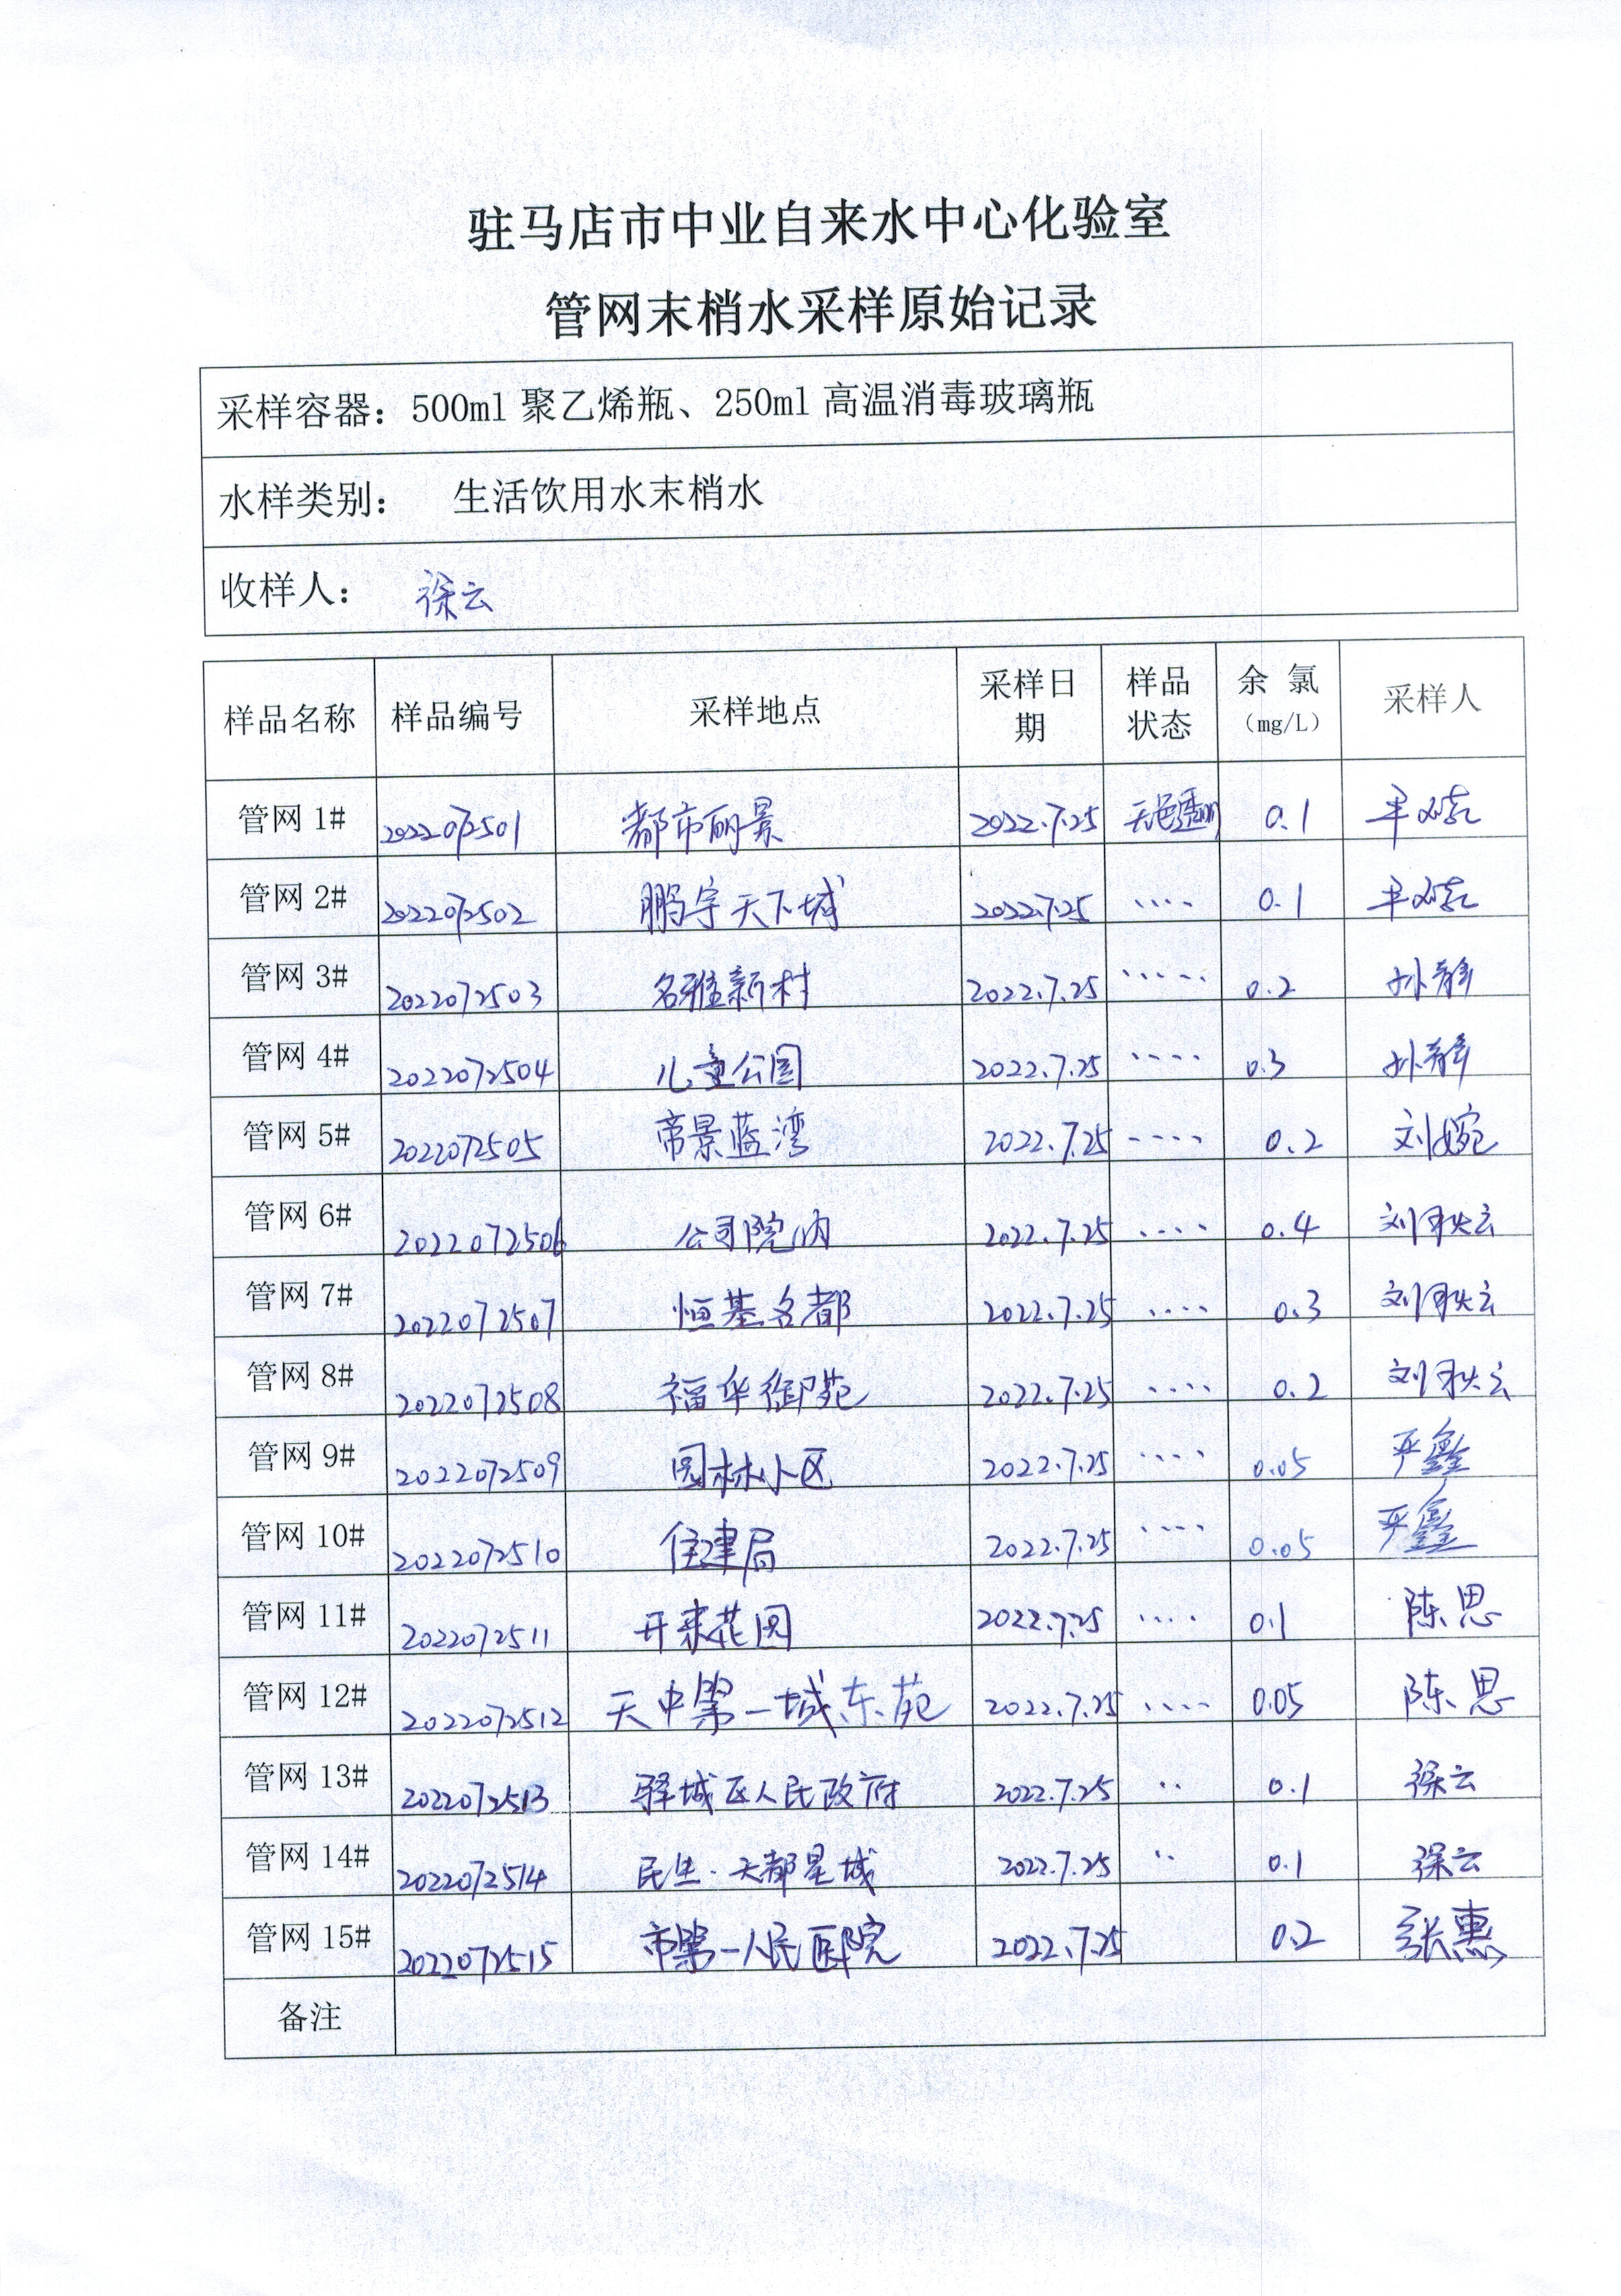 驻马店市中业自来水中心化验室
管网末梢水采样原始记录
采样容器：500ml 聚乙烯瓶、250ml 高温消毒玻璃瓶
水样类别： 生活饮用水末梢水
收样人： 徐云
样品名称 样品编号 采样地点 采样日期 样品状态 余 氯（mg/L） 采样人
管网 1# 2022072501 都市丽景 2022.7.25 无色透明 0.1
管网 2# 2022072502 鹏宇天下城 2022.7.25 ···· 0.1
管网 3# 2022072503 名雅新村 2022.7.25 ····· 0.2 孙静
管网 4# 2022072504 儿童公园 2022.7.25 ···· 0.3 孙静
管网 5# 2022072505 帝景蓝湾 2022.7.25 ···· 0.2 刘婉
管网 6# 2022072506 公司院内 2022.7.25 ···· 0.4 刘秋云
管网 7# 2022072507 恒基名都 2022.7.25 ···· 0.3 刘秋云
管网 8# 2022072508 福华御苑 2022.7.25 ···· 0.2 刘秋云
管网 9# 2022072509 园林小区 2022.7.25 ···· 0.05 平鑫
管网 10# 2022072510 住建局 2022.7.25 ···· 0.05 平鑫
管网 11# 2022072511 开来花园 2022.7.25 ···· 0.1 陈思
管网 12# 2022072512 天中第一城东苑 2022.7.25 ···· 0.05 陈思
管网 13# 2022072513 驿城区人民政府 2022.7.25 ·· 0.1 徐云
管网 14# 2022072514 民生·天都星城 2022.7.25 ·· 0.1 徐云
管网 15# 2022072515 市第一人民医院 2022.7.25 0.2 张惠
备注